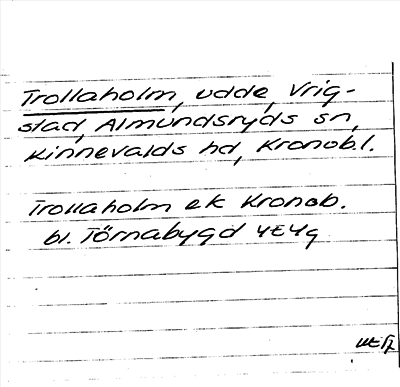 Trollaholm, udde, Vrig-
stad, Almundsryds sn,
Kinnevalds hd, Kronob.l.
Trollaholm ek Kronob.
bl. Törnabygd 4E4g